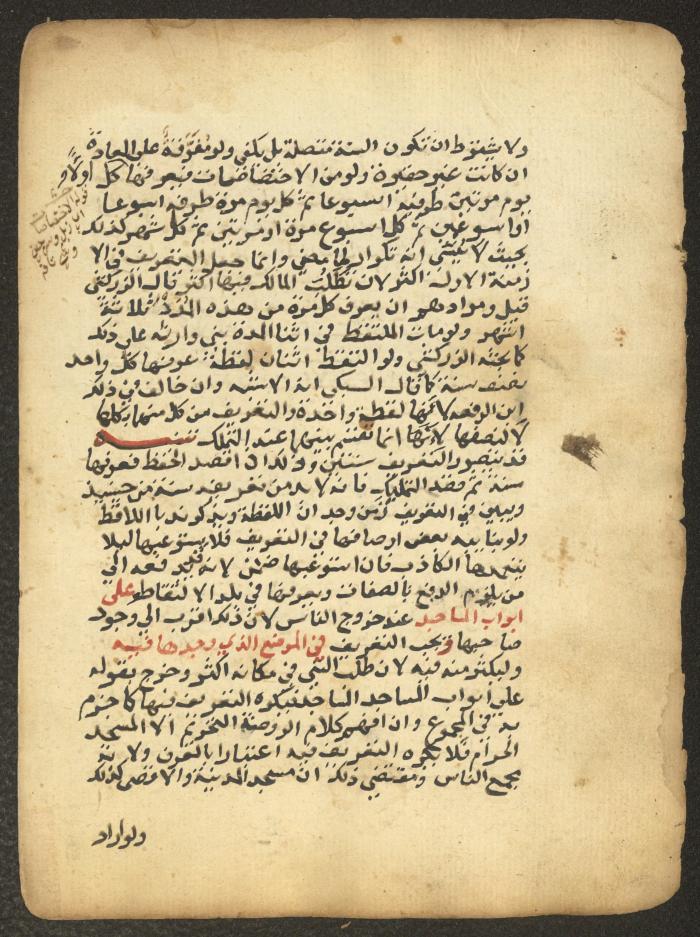 ولا يشترط ان تكون السنة متصلة بل يكفي ولو مفرقة على العادة
ان كانت غير حقيرة ولو من الاختصاصات فيعرفها كل اولا و
يوم مرتين طرفيه اسبوعا ثم كل يوم مرة طرفه اسبوعا
او اسبوعين ثم كل اسبوع مرة او مرتين ثم كل شهر كذلك
بحيث لا ينسى انه تكرار لما مضى وانما جعل التعريف في الا
زمنة الاول اكثر لان تطلب المالك فيها اكثر قال الزركشي
قيل ومرادهم ان يعرف كل مرة من هذه المدد ثلاثة
اشهر ولو مات الملتقط في اثنا المدة بنى وارثه على ذلك
كما بحثه الزركشي ولو التقط اثنان لقطة عرفها كل واحد
نصف سنة كما قال السبكي انه الاشبه وان خالف في ذلك
ابن الرفعه لانها لقطة واحدة والتعريف من كل منهما لكلها
لا لنصفها لانها انما تقسم بينهما عند التملك تنبيه
قد يتصور التعريف سنتين وذلك اذا قصد الحفظ فعرفها
سنة ثم قصد التملك فانه لا بد من تعريف سنة من حينيذ
ويبين في التعريف زمن وجد ان اللقطة ويذكر ندبا اللاقط
ولو بنايبه بعض اوصافها في التعريف فلا يستوعبها ليلا
يعتمدها الكاذب فان استوعبها ضمن لانه قد يرفعه الى
من يلزم الدفع بالصفات ويعرفها في بلد الالتقاط على
ابواب المساجد عند خروج الناس لان ذلك اقرب الى وجود
صاحبها ويجب التعريف في الموضع الذي وجدها فيه
وليكثر منه فيه لان طلب الشي في مكانه اكثر وخرج بقوله
على ابواب المساجد المساجد فيكره التعريف فيها كما جزم
به في المجموع وان افهم كلام الروضة التحريم الا المسجد
الحرام فلا يكره التعريف فيه اعتبارا بالعرف ولانه
مجمع الناس ومقتضى ذلك ان مسجد المدينة والاقصى كذلك
ولو اراد